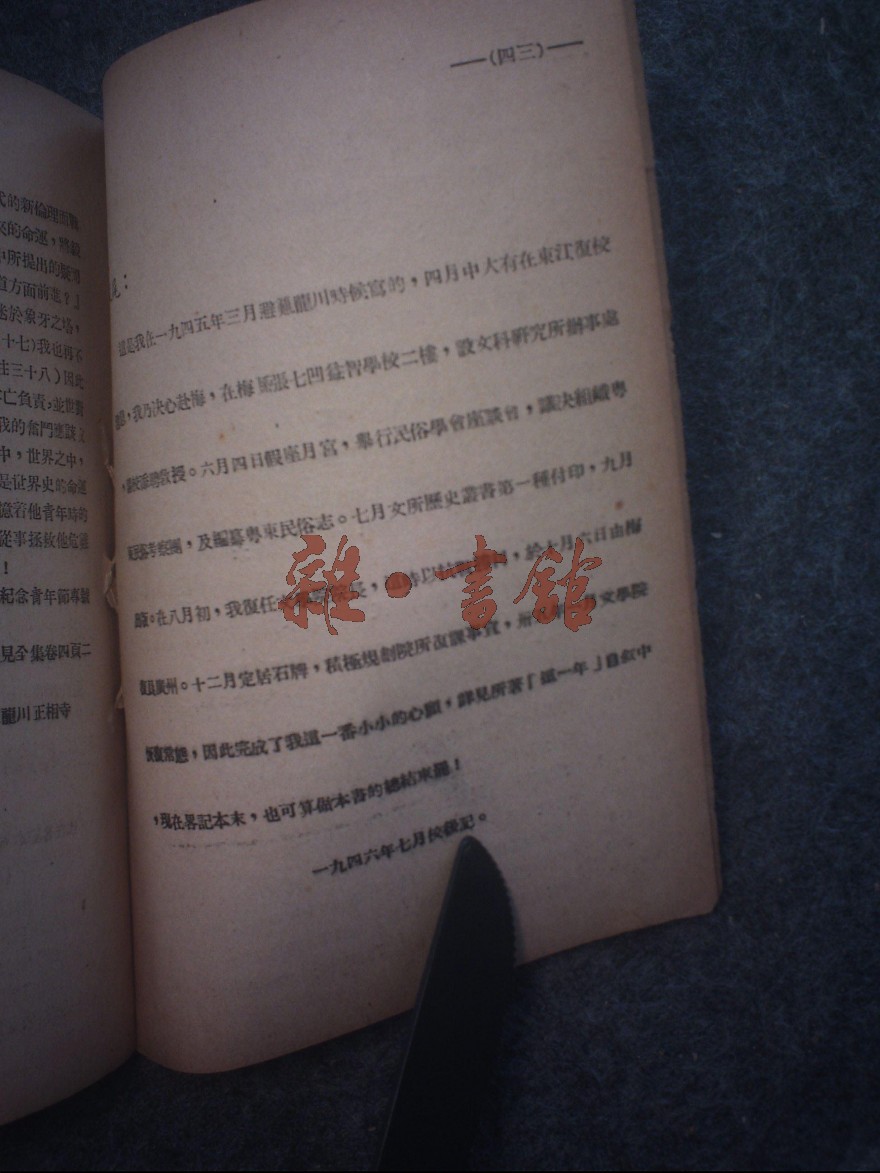 (四三)
這是我在一九四五年三月避難龍川時候寫的，四月中大有在東江復校
，我乃決心赴梅，在梅 張七凹益智學校二樓，設文科研究所辦事處
教授。六月四日假座月宮，舉行民俗學會座談會，議決組織粵
考察團，及編纂粵東民俗志。七月文所歷史叢書第一種付印，九月
在八月初，我復任 月 日由梅
復員廣州。十二月定居石牌，積極規劃院所復課事宜， 月文學院
恢復常態，因此完成了我這一番小小的心願，詳見所著「這一年」自敘中
，現在畧記本末，也可算做本書的總結束罷！
一九四六年七月校後記。
代的新倫理而戰
來的命運，
中所提出的疑問
道方面前進？」
於象牙之塔，
十七)我也再不
三十八）因此
亡負責，並世對
我的奮鬥應該
中，世界之中，
是世界史的命運
憶若他青年時的
從事拯救他危難
！
紀念青年節專號
見全集卷四頁二
龍川正相寺
雜·書館